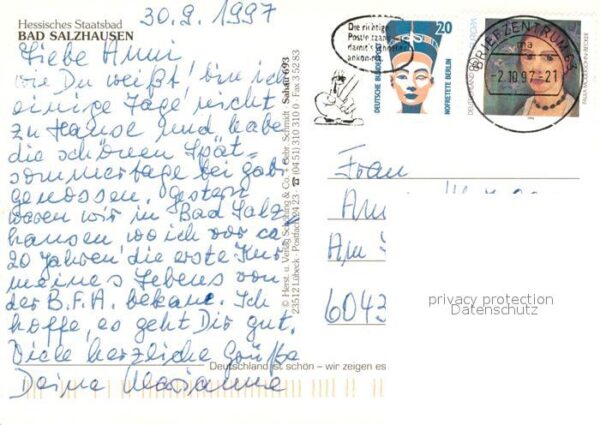 Hessisches Staatsbad
BAD SALZHAUSEN
30.9.1997
Liebe Anni
wie Du weißt, bin ich
einige Tage nicht
zu Hause und habe
die schönen Spät-
sommertage bei
genossen. Gestern
waren wir in Bad Salz
hausen wo ich vor ca.
20 Jahren die erste Kur
meines Lebens von
der B.F.A. bekam. Ich
hoffe, es geht Dir gut.
Viele herzliche Grüße
Deine Marianne
© Herst. u. Verlag Schöning & Co. + Gebr. Schmidt Sahau 693
23512 Lübeck · Postfach 24 23 · ☎ (04 51) 310 310 0 · Fax 3 52 83
Deutschland ist schön – wir zeigen es
Die richtige
Postleitzahl
damit's
DEUTSCHE BUNDESPOST
20
NOFRETETE BERLIN
BRIEFZENTRUM
-2.10.97-21
Frau
Am
6043
privacy protection
Datenschutz